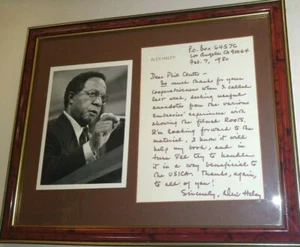 ALEX HALEY
P.O. Box
Los Angeles CA
Feb. 7, 1980
Dear Phil
So much thanks for your
cooperativeness when I called
last week, seeking useful
anecdotes from the various
Embassies' experiences with
showing the filmed ROOTS.
I'm looking forward to the
material, I know it will
help my book, and in
turn I'll try to handle
it in a way beneficial to
the USICA. Thanks, again,
to all of you!
Sincerely, Alex Haley